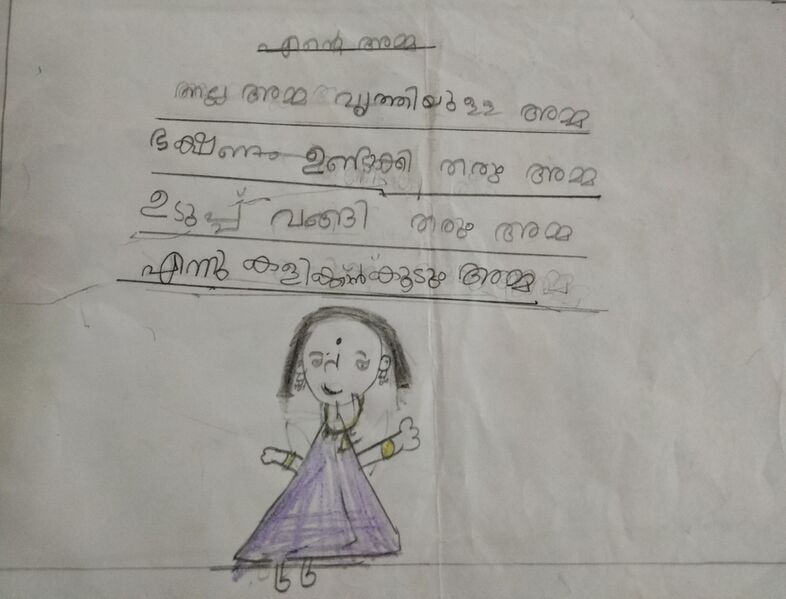 എന്റെ അമ്മ
നല്ല അമ്മ വൃത്തിയുള്ള അമ്മ
ഭക്ഷണം ഉണ്ടാക്കി തരും അമ്മ
ഉടുപ്പ് വാങ്ങി തരും അമ്മ
എന്നും കളിക്കാൻകൂടും അമ്മ